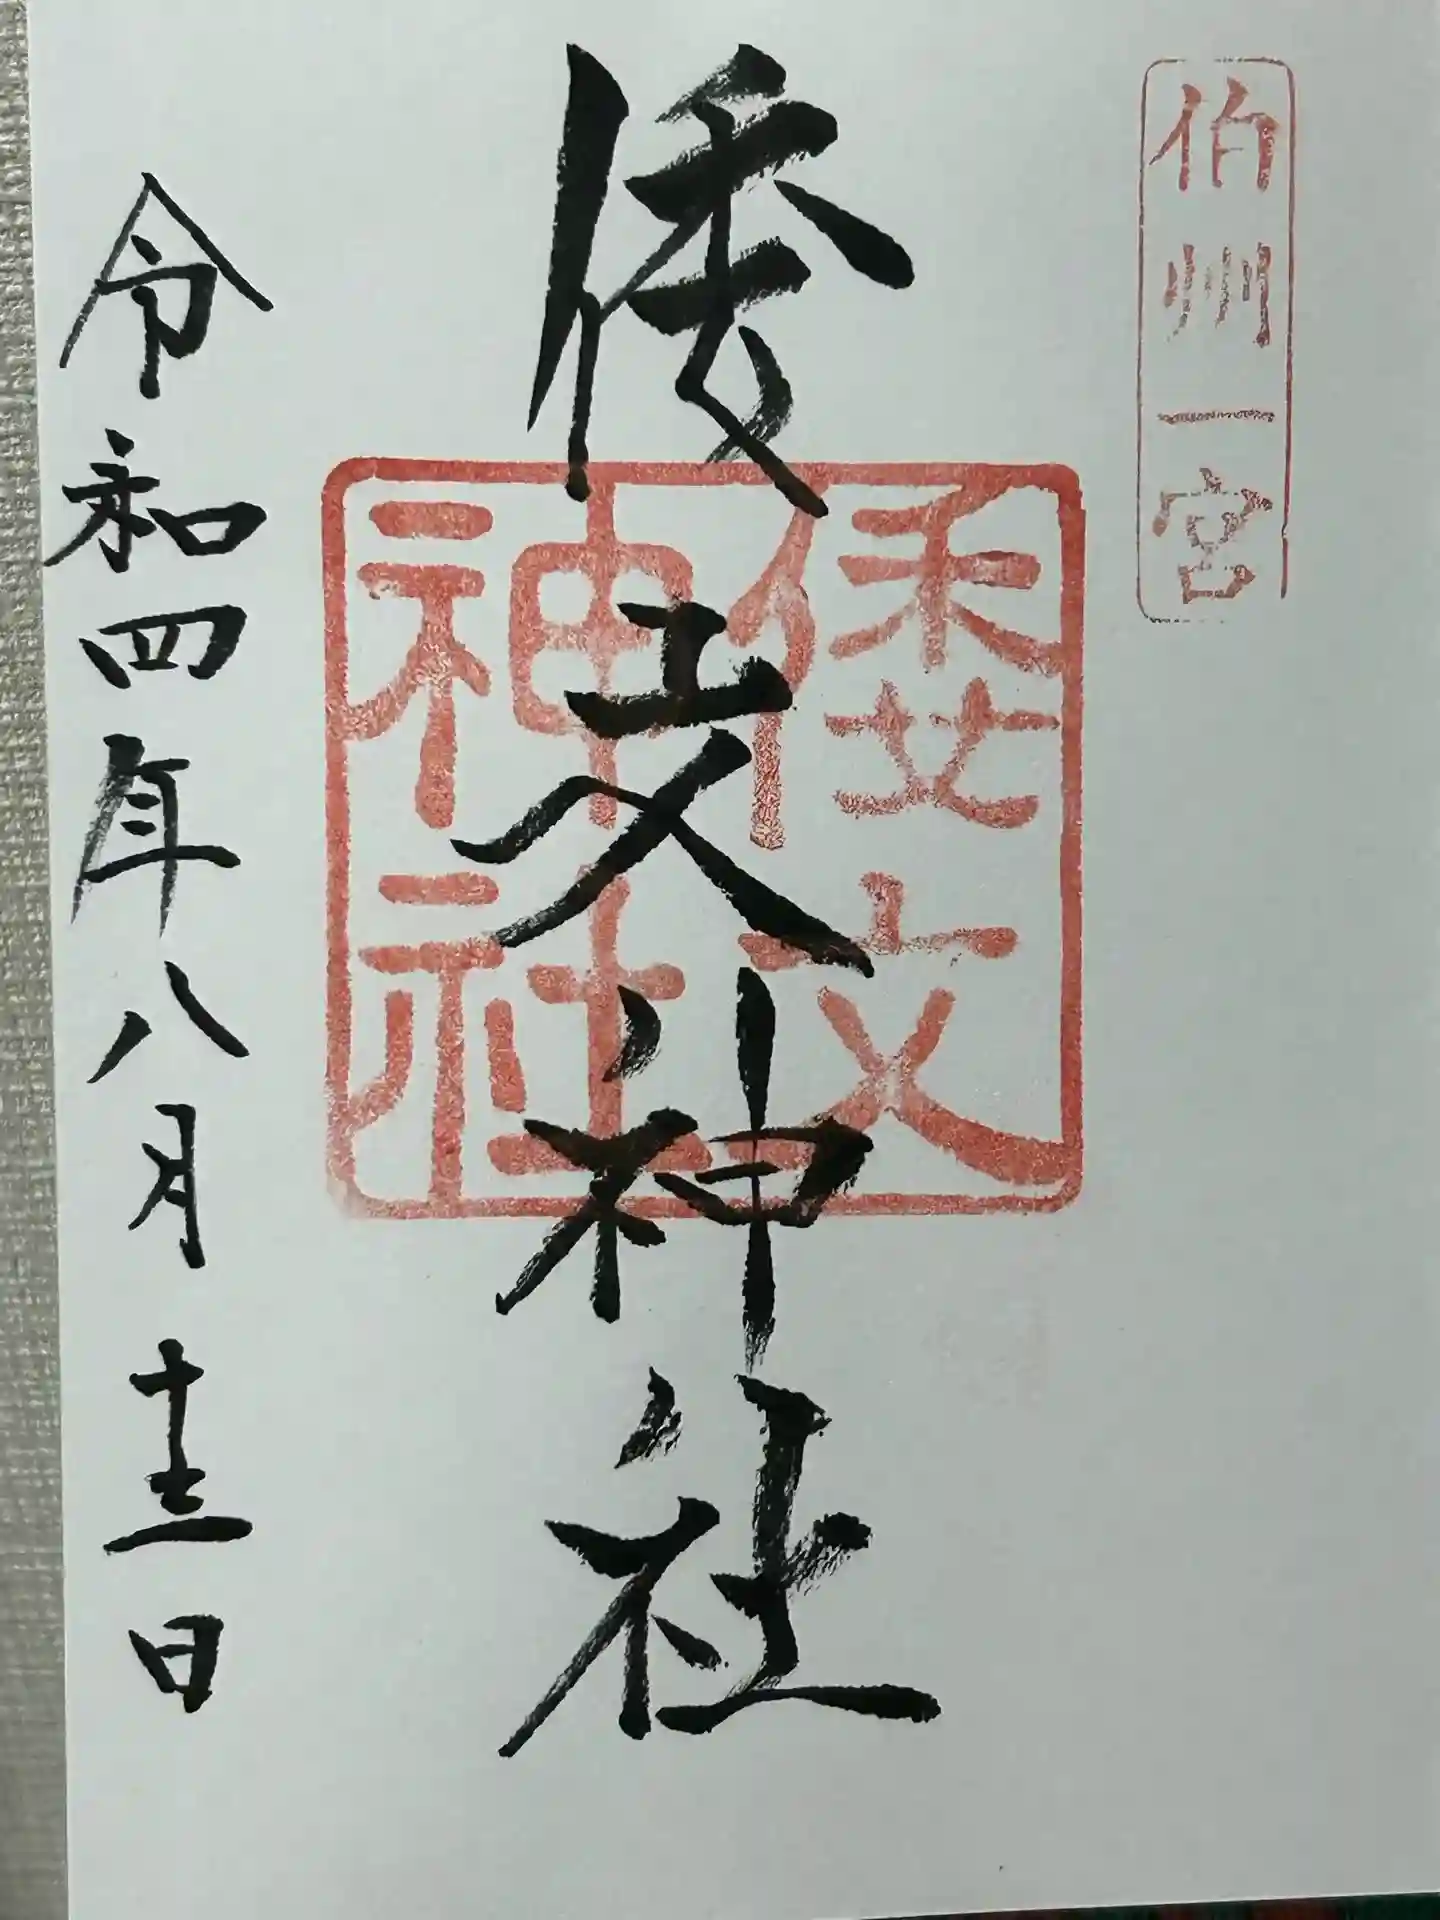 伯州一宮
倭文神社
倭文
神社
令和四年八月十三日